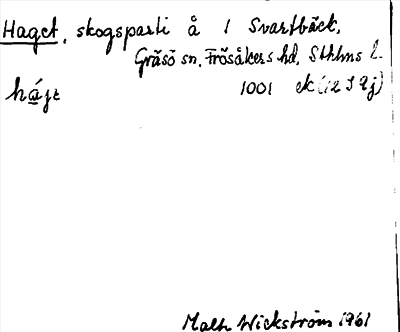 Haget, skogsparti å 1 Svartbäck,
Gräsö sn, Frösåkers hd, Sthlms l.
hájt 1001 ek (12 I 9j)
Malte Wickström 1961